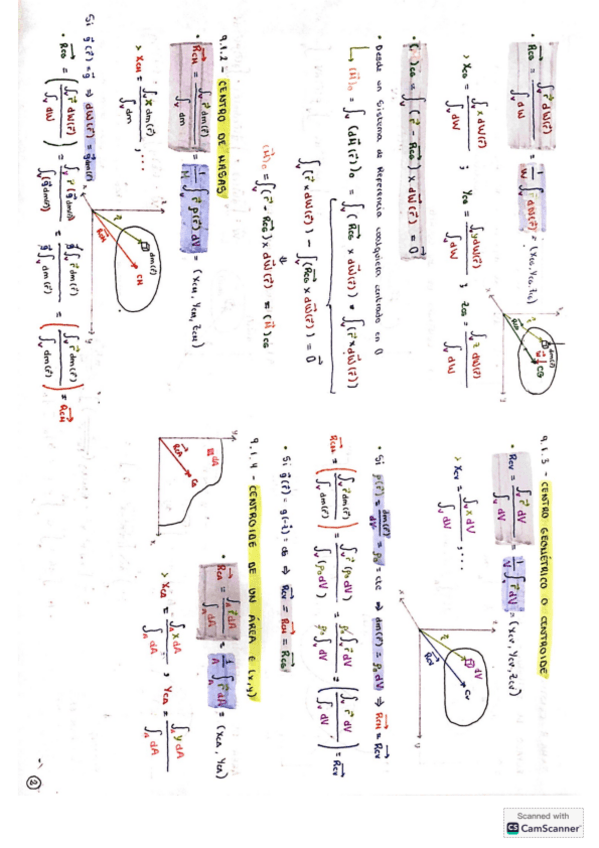 • R⃗cg = ∫ᵥ r⃗ dW(r⃗) / ∫ᵥ dW = 1/W ∫ᵥ r⃗ dW(r⃗) = (Xcg, Ycg, Zcg)
> Xcg = ∫ᵥ x dW(r⃗) / ∫ᵥ dW ; Ycg = ∫ᵥ y dW(r⃗) / ∫ᵥ dW ; Zcg = ∫ᵥ z dW(r⃗) / ∫ᵥ dW
dm(r⃗)
CG
• ( )cg = ∫ᵥ (r⃗ - R⃗cg) x dW⃗(r⃗) = 0⃗
• Desde un Sistema de Referencia cualquiera centrado en O
(M⃗)o = ∫ᵥ (dM⃗(r⃗))o = ∫ᵥ (R⃗cg x dW⃗(r⃗)) = ∫ᵥ (r⃗ x dW⃗(r⃗))
∫ᵥ (r⃗ x dW⃗(r⃗)) - ∫ᵥ (R⃗cg x dW⃗(r⃗)) = 0⃗
⇓
(M⃗)o = ∫ᵥ (r⃗ - R⃗cg) x dW⃗(r⃗) = (M⃗)cg
9.1.2 - CENTRO DE MASAS
• R⃗cM = ∫ᵥ r⃗ dm(r⃗) / ∫ᵥ dm = 1/M ∫ᵥ r⃗ ρ(r⃗) dV = (XcM, YcM, ZcM)
> XcM = ∫ᵥ x dm(r⃗) / ∫ᵥ dm ; ...
dm(r⃗)
CM
R⃗cM
Si g⃗(r⃗) = g⃗ ⇒ dW⃗(r⃗) = g⃗ dm(r⃗)
• R⃗cg = (∫ᵥ r⃗ dW(r⃗) / ∫ᵥ dW) = ∫ᵥ r⃗ (g⃗ dm(r⃗)) / ∫ᵥ (g⃗ dm(r⃗)) = g⃗ ∫ᵥ r⃗ dm(r⃗) / g⃗ ∫ᵥ dm(r⃗) = (∫ᵥ r⃗ dm(r⃗) / ∫ᵥ dm(r⃗)) = R⃗cM
9.1.3 - CENTRO GEOMÉTRICO O CENTROIDE
• R⃗cv = ∫ᵥ r⃗ dV / ∫ᵥ dV = 1/V ∫ᵥ r⃗ dV = (Xcv, Ycv, Zcv)
> Xcv = ∫ᵥ x dV / ∫ᵥ dV ; ...
dV
Cv
R⃗cv
• Si ρ(r⃗) = dm(r⃗)/dV = ρ₀ = cte ⇒ dm(r⃗) = ρ₀ dV ⇒ R⃗cM = R⃗cv
R⃗cM = (∫ᵥ r⃗ dm(r⃗) / ∫ᵥ dm(r⃗)) = ∫ᵥ r⃗ (ρ₀ dV) / ∫ᵥ (ρ₀ dV) = ρ₀ ∫ᵥ r⃗ dV / ρ₀ ∫ᵥ dV = (∫ᵥ r⃗ dV / ∫ᵥ dV) = R⃗cv
• Si g⃗(r⃗) = ⇒ R⃗cv = R⃗cM = R⃗cg
9.1.4 - CENTROIDE DE UN ÁREA E (x,y)
dA
R⃗cA
• R⃗cA = ∫ₐ r⃗ dA / ∫ₐ dA = 1/A ∫ₐ r⃗ dA = (XcA, YcA)
> XcA = ∫ₐ x dA / ∫ₐ dA ; YcA = ∫ₐ y dA / ∫ₐ dA
2
Scanned with
CS CamScanner